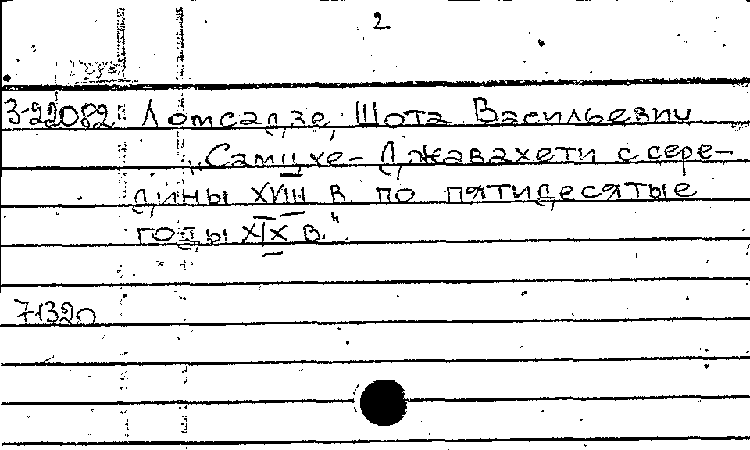 2
3-22082 Ломсадзе, Шота Васильевич
„Самцхе-Джавахети с сере-
дины XVIII в. по пятидесятые
годы XIX в."
71320